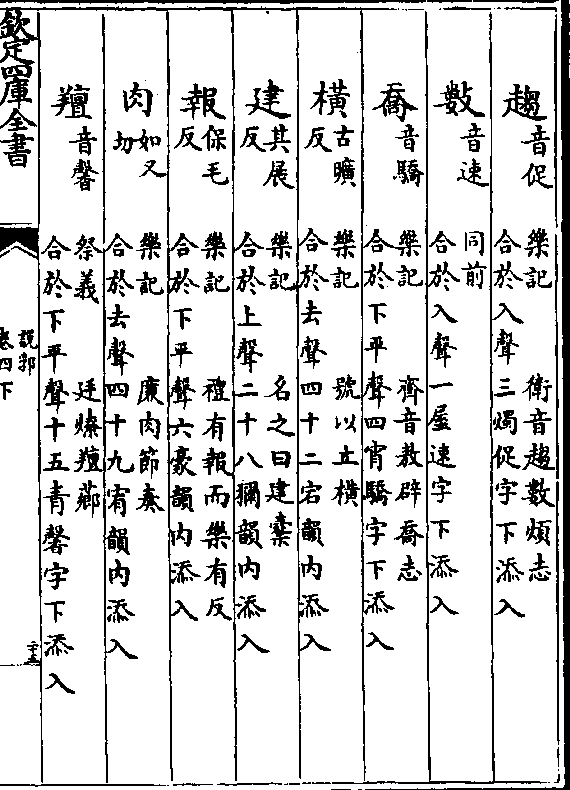 趨音促 樂記 衛音趨數煩志 合於入聲三燭促字下添入
數音速 同前 合於入聲一屋速字下添入
喬音驕 樂記 齊音敖辟喬志 合於下平聲四宵驕字下添入
橫古曠反 樂記 號以立橫 合於去聲四十二宕韻内添入
建其展反 樂記 名之曰建櫜 合於上聲二十八獮韻内添入
報保毛反 樂記 禮有報而樂有反 合於下平聲六豪韻内添入
肉如又切 樂記 廉肉節奏 合於去聲四十九宥韻内添入
羶音馨 祭義 廷燎羶薌 合於下平聲十五青馨字下添入
欽定四庫全書
說郛
卷四下